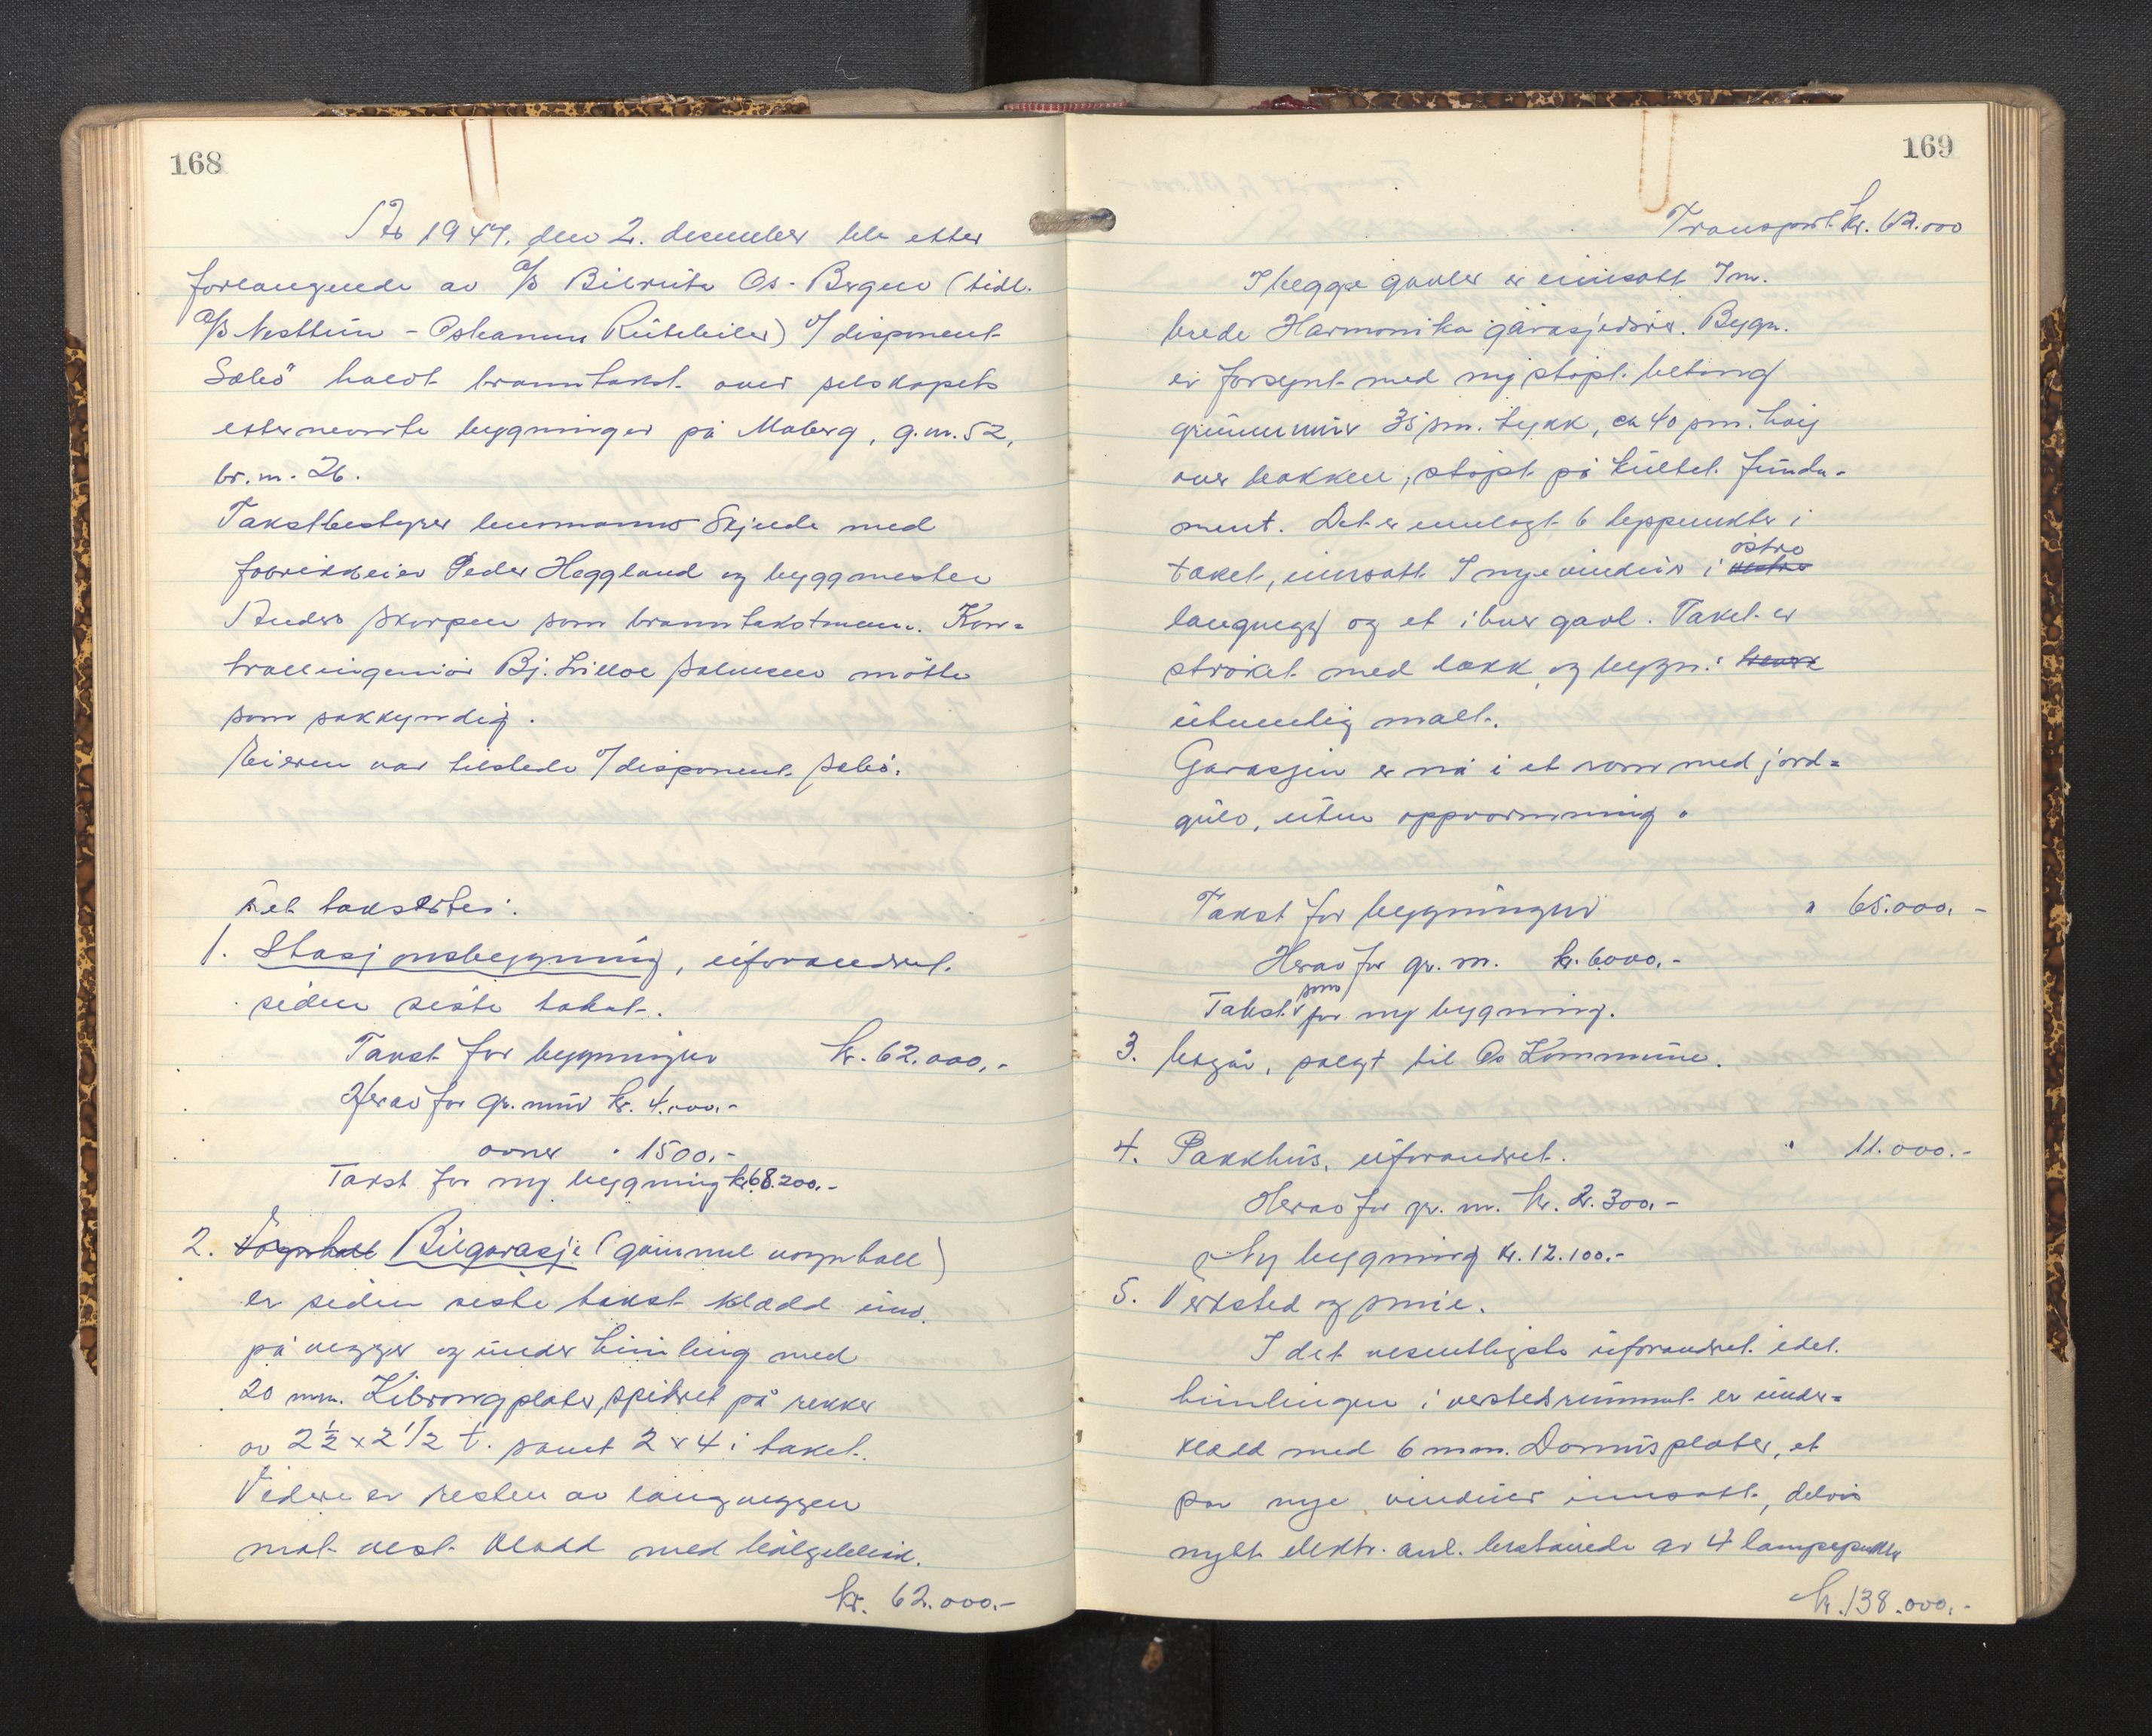 168
År 1947, den 2. desember ble etter
forlangende av A/S Bilruta Os-Bergen (tidl.
A/S Nesttun - Osbanens Rutebiler) v/ disponent
Sæbö holdt branntakst over selskapets
etternevnte bygninger på Moberg, g.nr. 52,
br.nr. 26.
Takstbestyrer lensmann Skjende med
fabrikkeier Peder Heggland og byggmester
Anders Skorpen som branntakstmenn. Kon=
trollingeniör Bj. Lilloe Salvesen mötte
som sakkyndig.
Eieren var tilstede v/ disponent Sæbö.
Det taksertes:
1. Stasjonsbygning, uforandret
siden siste takst.
Takst for bygningen kr. 62.000,-
Herav for gr.mur kr. 4.000,-
ovner " 1500,-
Takst for ny bygning kr. 68.200,-
2. Vognhall Bilgarasje (gammel vognhall)
er siden siste takst klædd inv.
på vegger og under himling med
20 mm. plater, spikret på rekker
av 2½ x 2 1/2 t. samt 2 x 4 i taket.
Videre er resten av langveggen
mot vest klædd med bölgeblikk.
kr. 62.000,-
169
Transport kr. 62.000
I begge gavler er innsatt 7 m.
brede Harmonika garasjedörer. Bygn.
er forsynt med ny stöpt betong
grunnmur 35 sm. tykk, ca 40 sm. höy
over bakken, stöpt på kultet funda-
ment. Det er innlagt 6 lyspunkter i
östre
taket, innsatt 7 nye vinduer i vestre
langvegg og et i hver gavl. Taket er
ströket med lakk og bygn.
utvendig malt.
Garasjen er nå i et rom med jord=
gulv, uten oppvarmning.
Takst for bygningen " 65.000,-
Herav for gr. m. kr. 6000,-
som
Takst for ny bygning.
3. Utgår, solgt til Os Kommune.
4. Pakkhus, uforandret. " 11.000.-
Herav for gr. m. kr. 2.300,-
Ny bygning kr. 12.100.-
5. Verksted og smie.
I det vesentligste uforandret idet
himlingen i verkstedrummet er under=
klædd med 6 mm. Domusplater, et
par nye vinduer innsatt, delvis
nytt elektr. anl. bestående av 4 lampepunkter
kr. 138.000,-